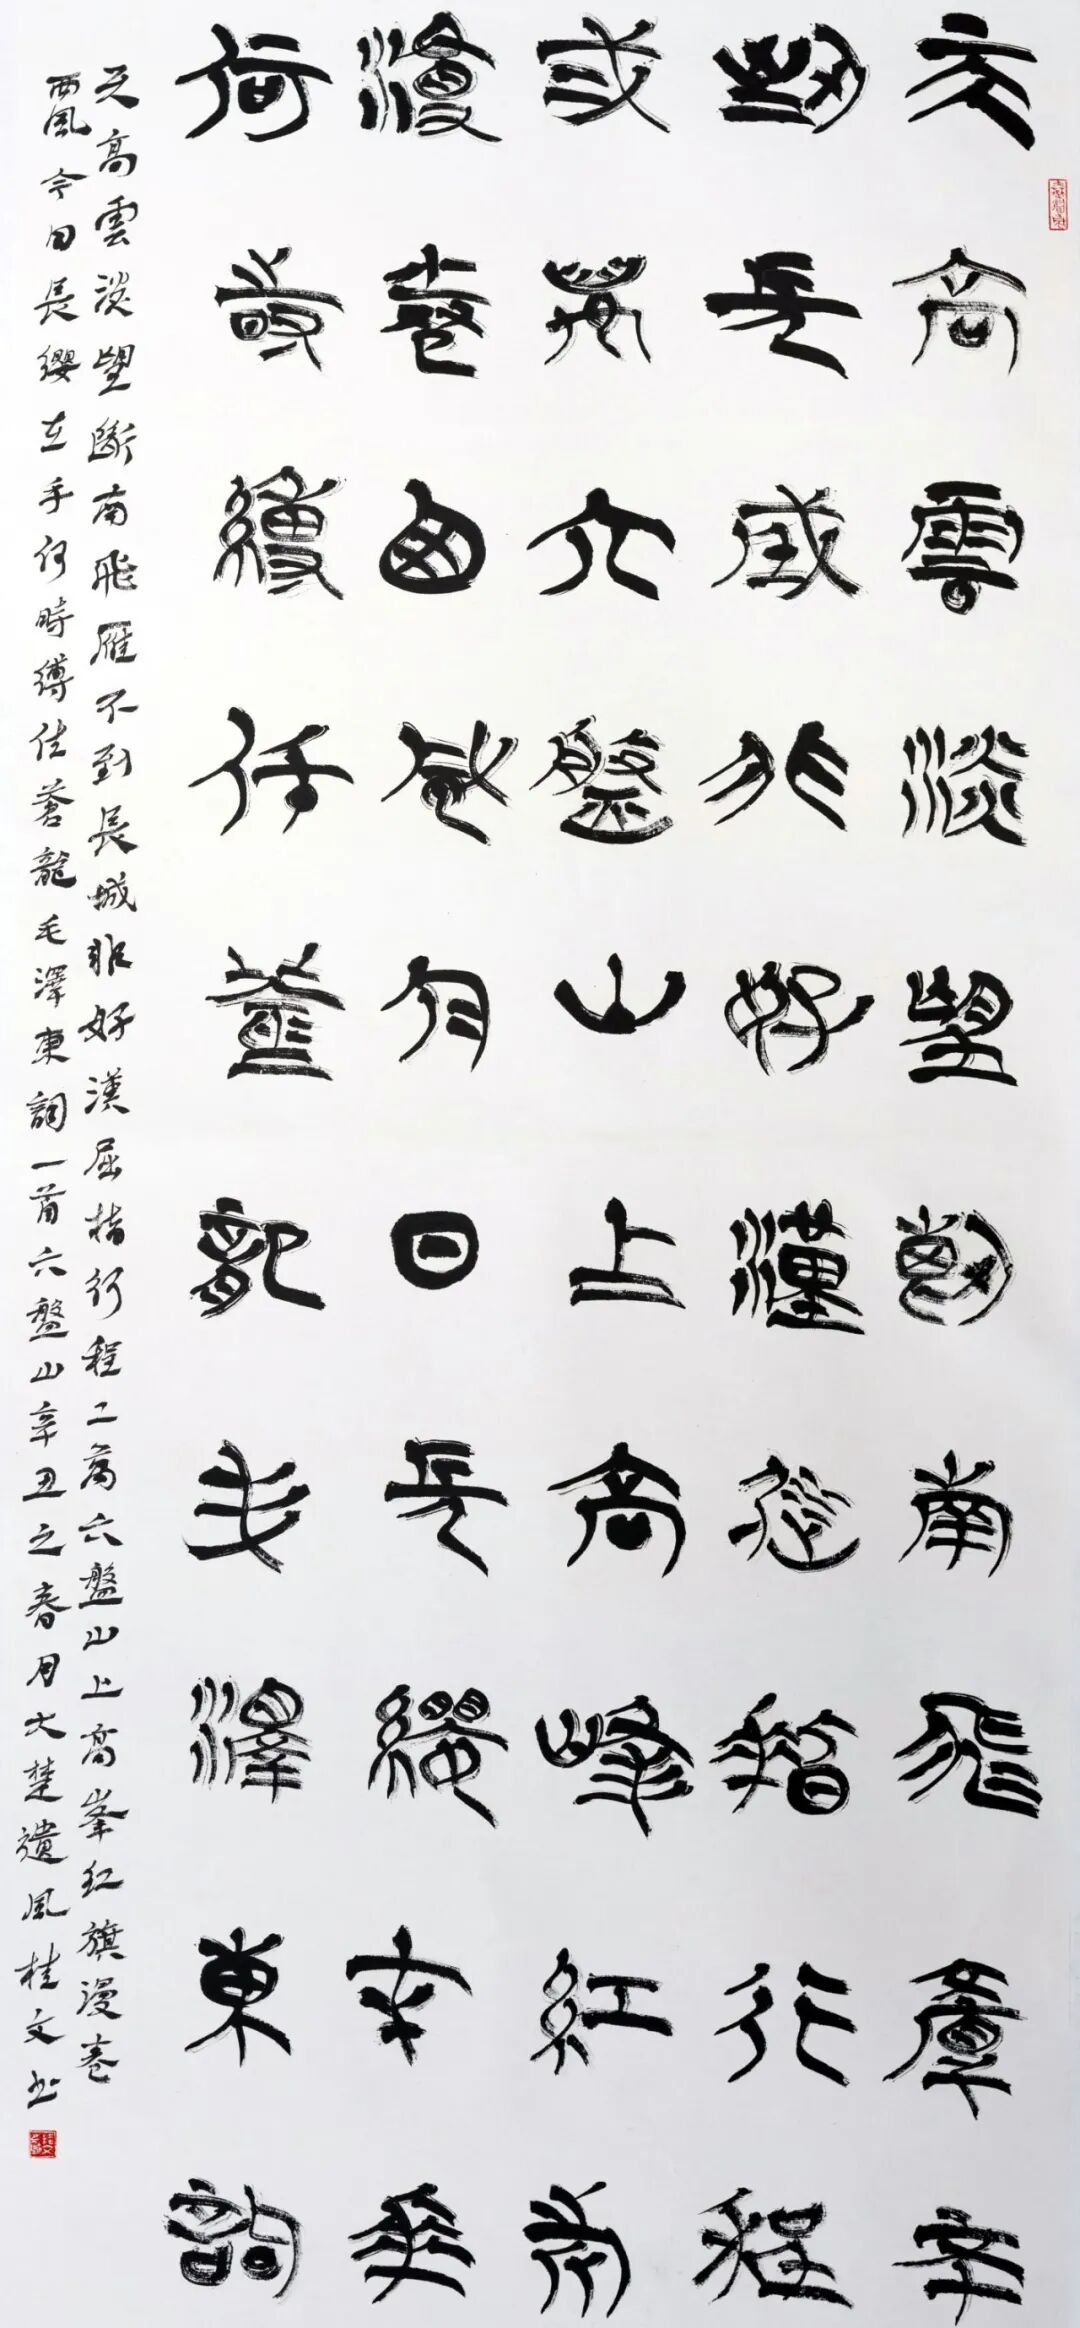 天高雲淡望斷南飛雁不
到長城非好漢屈指行程
二萬六盤山上高峰紅旗
漫卷西風今日長纓在手
何時縛住蒼龍毛澤東詞
天高雲淡望斷南飛雁不到長城非好漢屈指行程二萬六盤山上高峯紅旗漫卷
西風今日長纓在手何時縛住蒼龍毛澤東詞一首六盤山辛丑之春月大楚遺風桂文书